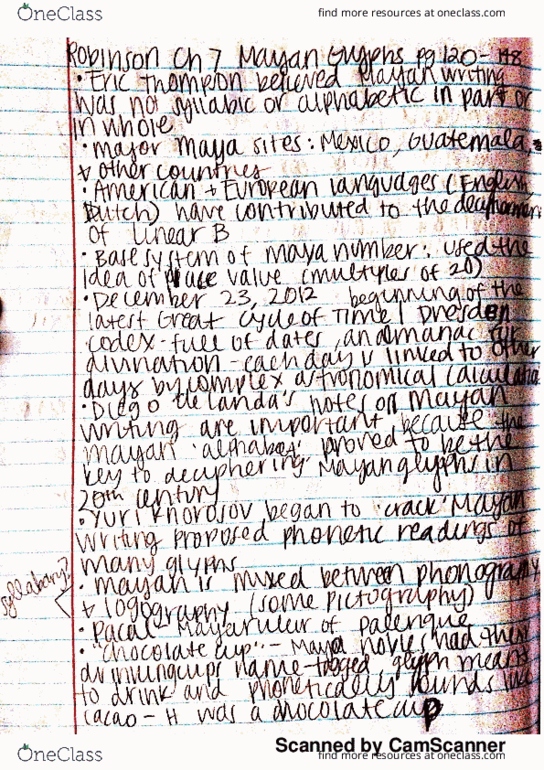 OneClass
find more resources at oneclass.com
Robinson Ch 7 Mayan Glyphs pg 120-148
• Eric Thompson believed Mayan writing
was not syllabic or alphabetic in part or
in whole
• major Maya sites: Mexico, Guatemala,
+ other countries
• American + European languages (English,
Dutch) have contributed to the decipherment
of Linear B
• Base system of maya number: used the
idea of place value (multiples of 20)
• December 23, 2012 beginning of the
latest Great Cycle of Time / Dresden
codex - full of dates, an almanac for
divination - each day is linked to other
days by complex astronomical calculations
• Diego de landa's notes on Mayan
writing are important because the
mayan 'alphabet' proved to be the
key to deciphering Mayan glyphs in
20th century
• Yuri Knorosov began to 'crack' Mayan
writing proposed phonetic readings of
many glyphs
syllabary?
• mayan is mixed between phonography
+ logography (some pictography)
• Pacal - Mayan ruler of palenque
• "chocolate cup" - Maya noble had these
drinking cups name-tagged glyph means
to drink and phonetically sounds like
cacao - it was a chocolate cup
Scanned by CamScanner
OneClass
find more resources at oneclass.com